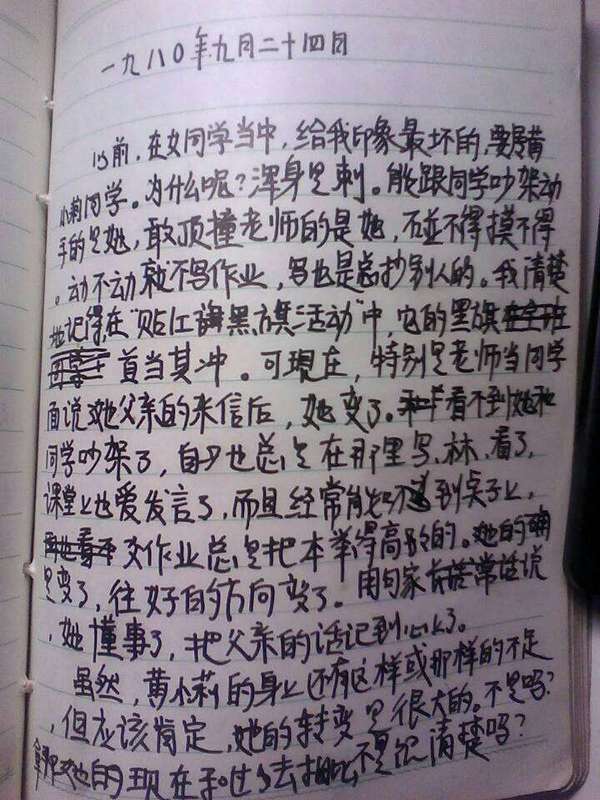 一九八〇年九月二十四日
以前,在女同学当中,给我印象最坏的,要属黄
小莉同学。为什么呢?浑身是刺。能跟同学吵架动
手的是她,敢顶撞老师的是她,碰不得摸不得
。动不动就不写作业,写也是总抄别人的。我清楚
地记得,在“贴江旗黑旗活动”中,它的黑旗在全班
首当其冲。可現在,特别是老师当同学
面说她父亲的来信后,她变了。看不到她和
同学吵架了,自习也总是在那里写、看了,
课堂上也爱发言了,而且经常能 到桌子上,
交作业总是把本举得高高的。她的确
是变了,往好的方向变了。用句家 常话说
,她懂事了,把父亲的话记到心上了。
虽然,黄小莉的身上还有这样或那样的不足
,但应该肯定,她的转变是很大的。不是吗?
拿她的现在和过去 比不是很清楚吗?